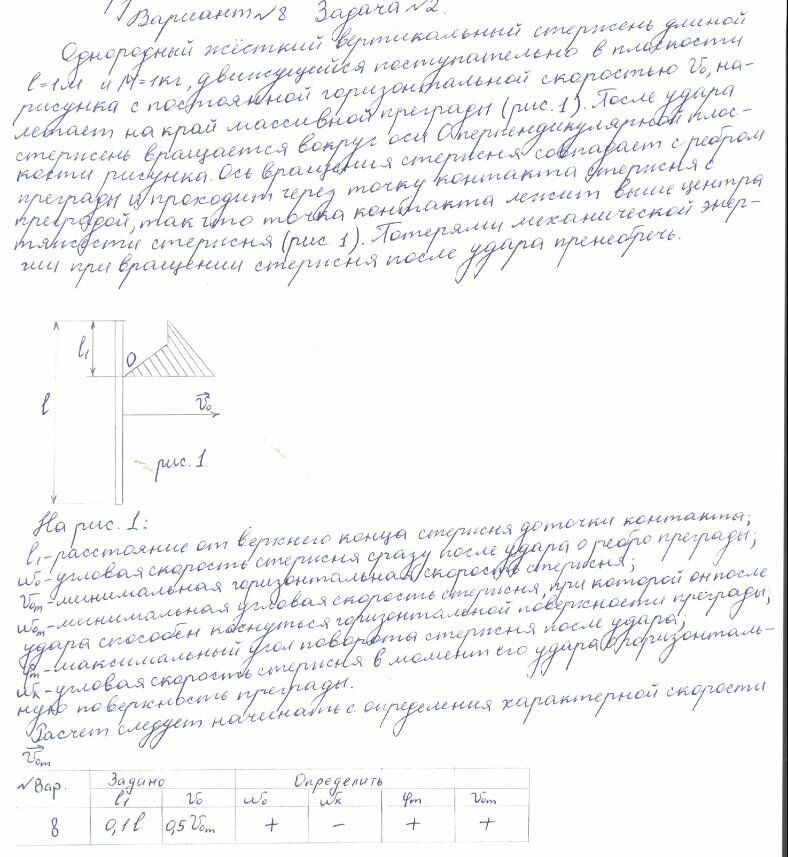 Вариант №8 Задача №2.
Однородный жёсткий вертикальный стержень длиной
l=1м и M=1кг, движущийся поступательно в плоскости
рисунка с постоянной горизонтальной скоростью V₀, на-
летает на край массивной преграды (рис. 1). После удара
стержень вращается вокруг оси О перпендикулярной плос-
кости рисунка. Ось вращения стержня совпадает с ребром
преграды и проходит через точку контакта стержня с
преградой, так что точка контакта лежит выше центра
тяжести стержня (рис. 1). Потерями механической энер-
гии при вращении стержня после удара пренебречь.
l₁
O
l
V₀
рис. 1.
На рис. 1:
l₁-расстояние от верхнего конца стержня до точки контакта;
ω₀-угловая скорость стержня сразу после удара о ребро преграды;
V₀m-минимальная горизонтальная скорость стержня;
ω₀m-минимальная угловая скорость стержня, при которой он после
удара способен коснуться горизонтальной поверхности преграды;
φm-максимальный угол поворота стержня после удара;
ωк-угловая скорость стержня в момент его удара о горизонталь-
ную поверхность преграды.
Расчет следует начинать с определения характерной скорости
V₀m
№Вар. Задано Определить
l₁ V₀ ω₀ ωк φm V₀m
8 0,1l 0,5V₀m + - + +